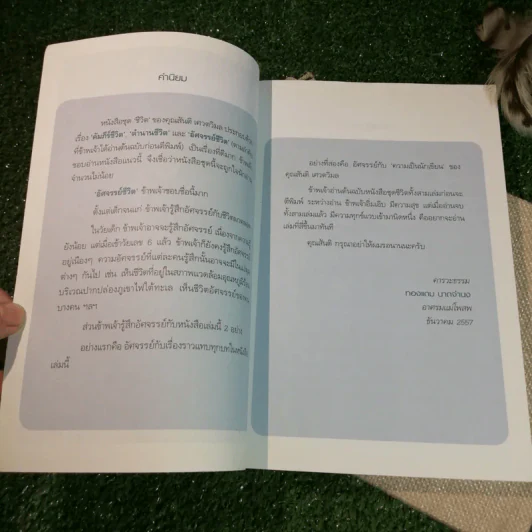 คำนิยม
หนังสือชุด 'ชีวิต' ของคุณสันติ เศวตวิมล ประกอบด้วย
เรื่อง 'คัมภีร์ชีวิต' 'ตำนานชีวิต' และ 'อัศจรรย์ชีวิต'
ที่ข้าพเจ้าได้อ่านต้นฉบับก่อนตีพิมพ์ เป็นเรื่องที่ดีมาก
ชอบอ่านหนังสือแนวนี้ จึงเชื่อว่าหนังสือชุดนี้จะถูกใจนักอ่าน
จำนวนไม่น้อย
'อัศจรรย์ชีวิต' ข้าพเจ้าชอบชื่อนี้มาก
ตั้งแต่เด็กจนแก่ ข้าพเจ้ารู้สึกอัศจรรย์กับชีวิต
ในวัยเด็ก ข้าพเจ้าอาจจะรู้สึกอัศจรรย์ เนื่องจาก
ยังน้อย แต่เมื่อเข้าวัยเลข 6 แล้ว ข้าพเจ้าก็ยังคงรู้สึก
อยู่เนืองๆ ความอัศจรรย์ที่แต่ละคนรู้สึกนั้นอาจจะมีใน
ต่างๆ กันไป เช่น เห็นชีวิตที่อยู่ในสภาพแวดล้อมอุณหภูมิ
บริเวณปากปล่องภูเขาไฟใต้ทะเล เห็นชีวิตอัศจรรย์ของ
บางคน ฯลฯ
ส่วนข้าพเจ้ารู้สึกอัศจรรย์กับหนังสือเล่มนี้ 2 อย่าง
อย่างแรกคือ อัศจรรย์กับเรื่องราวแทบทุกบทในหนังสือ
เล่มนี้
อย่างที่สองคือ อัศจรรย์กับ 'ความเป็นนักเขียน' ของ
คุณสันติ เศวตวิมล
ข้าพเจ้าอ่านต้นฉบับหนังสือชุดชีวิตทั้งสามเล่มก่อนจะ
ตีพิมพ์ ระหว่างอ่าน ข้าพเจ้าอิ่มเอิบ มีความสุข แต่เมื่ออ่านจบ
ทั้งสามเล่มแล้ว มีความทุกข์แวบเข้ามานิดหนึ่ง คืออยากจะอ่าน
เล่มที่สี่ขึ้นมาทันที
คุณสันติ กรุณาอย่าให้ผมรอนานนะครับ
คารวะธรรม
ทองแถม นาถจำนง
อาศรมแม่โพสพ
ธันวาคม 2557